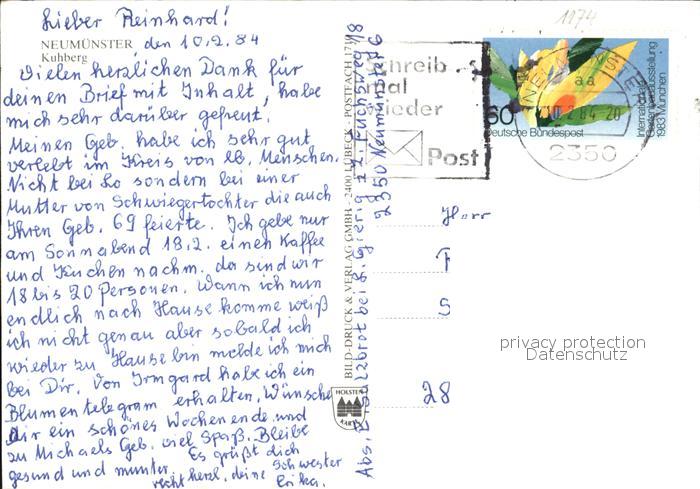 Lieber Reinhard!
NEUMÜNSTER, den 10.2.84
Kuhberg
Vielen herzlichen Dank für
deinen Brief mit Inhalt, habe
mich sehr darüber gefreut.
Meinen Geb. habe ich sehr gut
verlebt im Kreis von lb. Menschen.
Nicht bei Lo sondern bei einer
Mutter von Schwiegertochter die auch
Ihren Geb. 69 feierte. Ich gebe nur
am Sonnabend 18.2. einen Kaffee
und Kuchen nachm. da sind wir
18 bis 20 Personen. Wann ich nun
endlich nach Hause komme weiß
ich nicht genau aber sobald ich
wieder zu Hause bin melde ich mich
bei Dir. Von Irmgard habe ich ein
Blumentelegram erhalten. Wünsche
Dir ein schönes Wochenende und
zu Michaels Geb. viel Spaß. Bleibe
gesund und munter. Es grüßt dich
recht herzl. deine Schwester
Erika.
BILD-DRUCK & VERLAG GMBH - 2400 LÜBECK - POSTFACH
HOLSTEN
KARTE
Abs. E. bei G. Gierig
2350 Neumünster 6
Schreib
mal
wieder
Post
1174
60
Deutsche Bundespost
Internationale
Gartenbauausstellung
1983 München
NEUMÜNSTER
aa
10.2.84-20
2350
Herr
F
S
28
privacy protection
Datenschutz